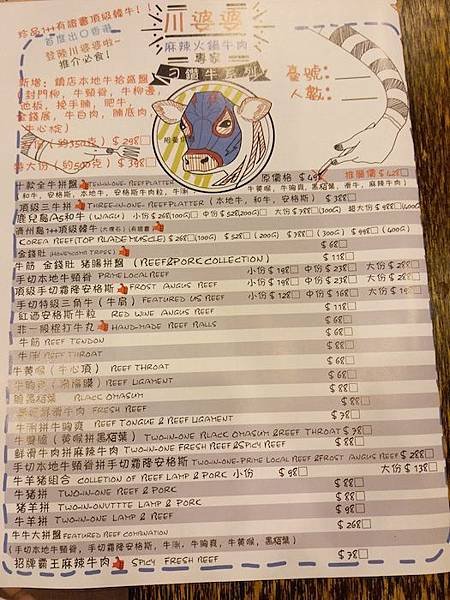 珍品1++有證書頂級韓牛!!
首度出口香港
登陸川婆婆啦~
推介必食!
川婆婆
麻辣火鍋牛肉
專家
刁鑽牛系列
臺號:
人數:
新增:鎮店本地牛拾盛盤
(封門柳,牛頸脊,牛柳邊,
池板,挽手腩,肥牛,
金錢展,牛白肉,腩底肉,
牛心椗)
(約350克) $298□
特大份(約500克) $398□
十款全牛拼盤 TEN-IN-ONE BEEF PLATTER 原價格 $498 推廣價 $428□
頂級三牛拼 THREE-IN-ONE BEEF PLATTER (本地牛,和牛,安格斯) $388□
鹿兒島A5和牛 (WAGU) 小份 $268(100G)□ 中份 $528(200G)
濟州島1++頂級韓牛
KOREA BEEF(TOP BLADE MUSCLE) $268□(100G) $528□(200G) $788□(300G) $998□(400G)
金錢肚 (HONEYCOMB TRIPES) $68□
牛筋 金錢肚 豬腸拼盤 (BEEF&PORK COLLECTION) $118□
手切本地牛頸脊 PRIME LOCAL BEEF 小份 $198□ 中份 $238□ 大份 $288□
頂級手切霜降安格斯 FROST ANGUS BEEF 小份 $198□ 中份 $238□ 大份 $288
手切特級三角牛(牛肩) FEATURED US BEEF 小份 $128□ 中份 $168□ 大份
紅酒安格斯牛粒 RED WINE ANGUS BEEF $118
非一般棍打牛丸 HAND-MADE BEEF BALLS $68□
牛筋 BEEF TENDON $68□
牛脷 BEEF THROAT $88□
牛黃喉(牛心頂) BEEF THROAT $68□
BEEF LIGAMENT $68□
BLACK OMASUM $88□
鮮滑牛肉 FRESH BEEF $88□
牛脷拼牛胸爽 BEEF TONGUE & BEEF LIGAMENT $98□
牛雙臉(黃喉拼黑栢葉) TWO-IN-ONE BLACK OMASUM & BEEF THROAT $78□
鮮滑牛肉拼麻辣牛肉 TWO-IN-ONE FRESH BEEF & SPICY BEEF $88□
手切本地牛頸脊拼手切霜降安格斯 TWO-IN-ONE-PRIME LOCAL BEEF & FROST ANGUS BEEF $288□
牛羊豬組合 COLLETION OF BEEF LAMP & PORK 小份 $98□ 大份 $138□
牛豬拼 TWO-IN-ONE BEEF & PORK $88□
豬羊拼 TWO-IN-ONUTTTE LAMP & PORK $88□
牛羊拼 TWO-IN-ONE LAMP & BEEF $98□
牛牛大拼盤 FEATURED BEEF COMBINATION $268□
(手切本地牛頸脊,手切霜降安格斯,牛脷,牛胸爽,牛黃喉,黑栢葉)
招牌霸王麻辣牛肉 SPICY FRESH BEEF $98□